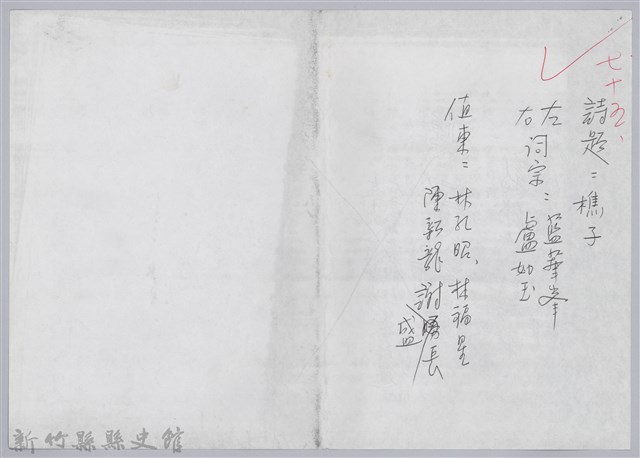 七十五、
詩題：樵子
左詞宗：藍華峯
右 盧如玉
值東：林孔昭、林福星
陳新龍 謝勝長
盛
新竹縣縣史館